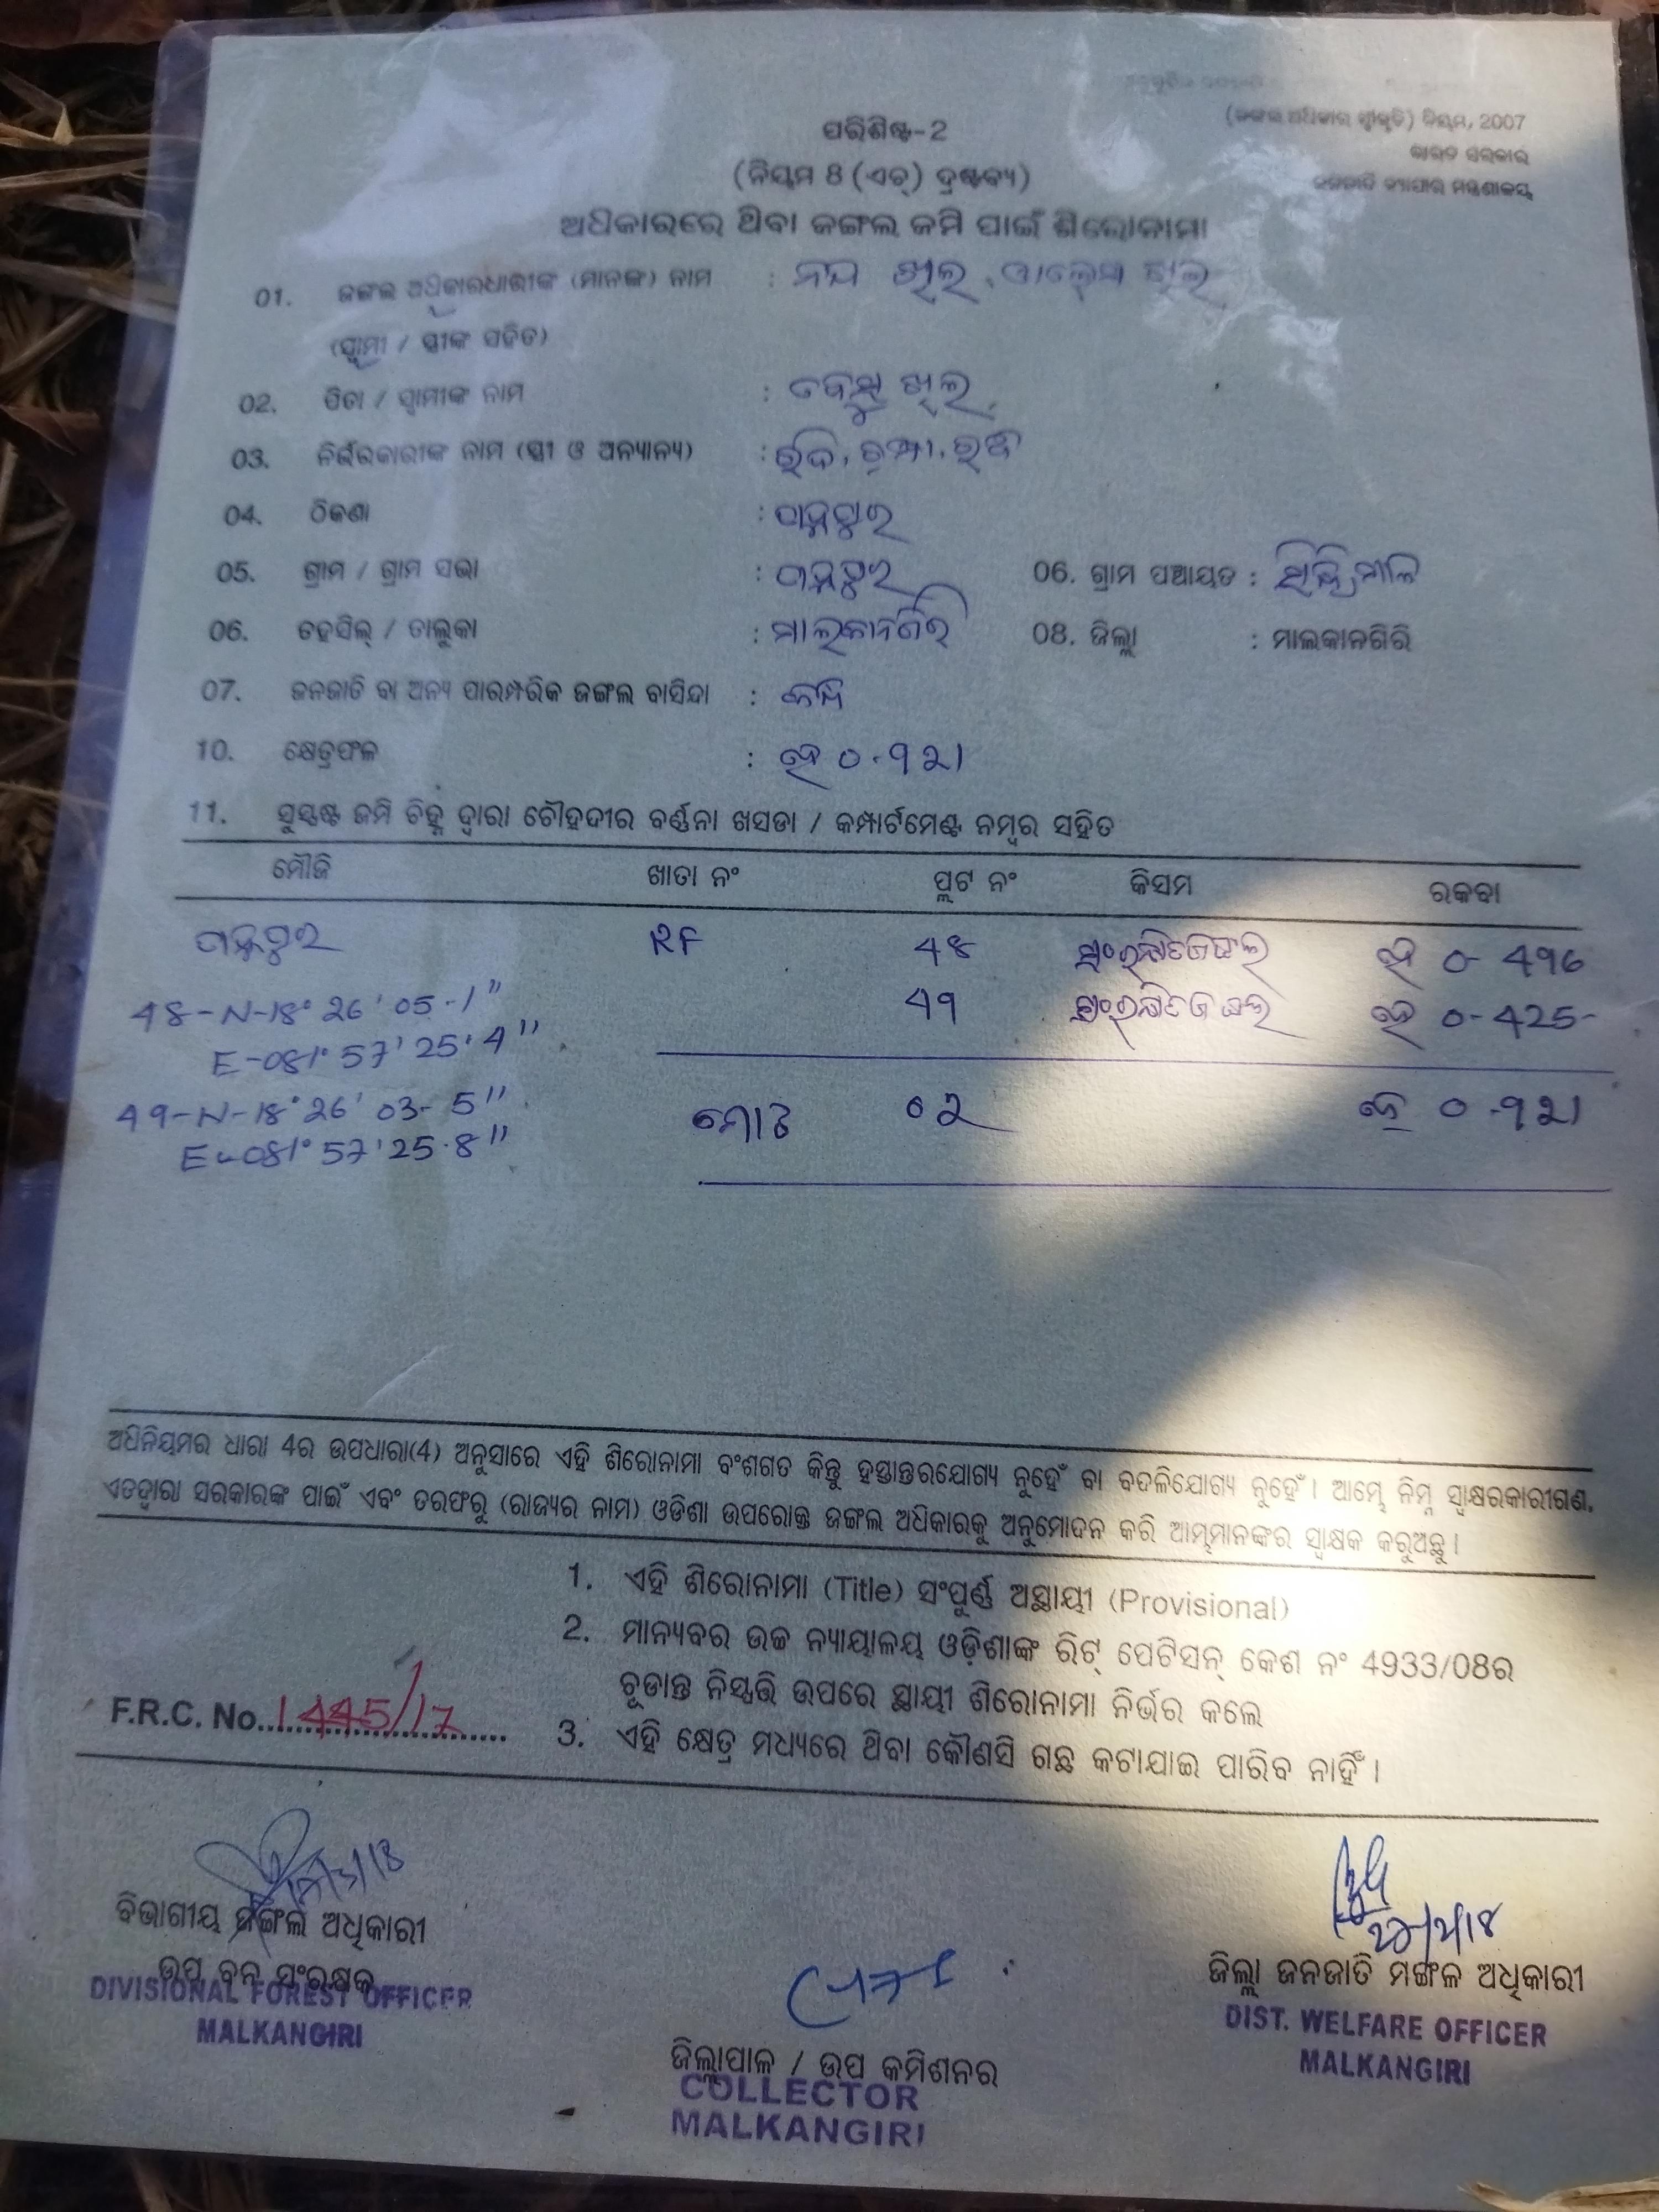 (ଜଙ୍ଗଲ ଅଧିକାର ସ୍ୱୀକୃତି) ନିୟମ, 2007
ପରିଶିଷ୍ଟ-2
ଭାରତ ସରକାର
(ନିୟମ 8 (ଏଚ୍) ଦ୍ରଷ୍ଟବ୍ୟ)
ଜନଜାତି ବ୍ୟାପାର ମନ୍ତ୍ରଣାଳୟ
ଅଧିକାରରେ ଥିବା ଜଙ୍ଗଲ ଜମି ପାଇଁ ଶିରୋନାମା
01. ଜଙ୍ଗଲ ଅଧିକାରଧାରୀଙ୍କ (ମାନଙ୍କ) ନାମ :
(ସ୍ୱାମୀ / ସ୍ତ୍ରୀଙ୍କ ସହିତ)
02. ପିତା / ସ୍ୱାମୀଙ୍କ ନାମ :
03. ନିର୍ଭରକାରୀଙ୍କ ନାମ (ସ୍ତ୍ରୀ ଓ ଅନ୍ୟାନ୍ୟ) :
04. ଠିକଣା :
05. ଗ୍ରାମ / ଗ୍ରାମ ସଭା : 06. ଗ୍ରାମ ପଞ୍ଚାୟତ :
06. ତହସିଲ୍ / ତାଲୁକା : ମାଲକାନଗିରି 08. ଜିଲ୍ଲା : ମାଲକାନଗିରି
07. ଜନଜାତି ବା ଅନ୍ୟ ପାରମ୍ପରିକ ଜଙ୍ଗଲ ବାସିନ୍ଦା :
10. କ୍ଷେତ୍ରଫଳ : ହେ ୦.୯୨୧
11. ସୁସ୍ପଷ୍ଟ ଜମି ଚିହ୍ନ ଦ୍ୱାରା ଚୌହଦୀର ବର୍ଣ୍ଣନା ଖସଡା / କମ୍ପାର୍ଟମେଣ୍ଟ ନମ୍ବର ସହିତ
ମୌଜି ଖାତା ନଂ ପ୍ଲଟ ନଂ କିସମ ରକବା
RF 48 ସଂରକ୍ଷିତ ଜଙ୍ଗଲ ହେ 0-496
48-N-18° 26' 05.1" 49 ସଂରକ୍ଷିତ ଜଙ୍ଗଲ ହେ 0-425-
E-081° 57' 25.4"
49-N-18° 26' 03-5" ମୋଟ ୦୨ ହେ ୦.୯୨୧
E-081° 57' 25.8"
ଅଧିନିୟମର ଧାରା 4ର ଉପଧାରା(4) ଅନୁସାରେ ଏହି ଶିରୋନାମା ବଂଶଗତ କିନ୍ତୁ ହସ୍ତାନ୍ତରଯୋଗ୍ୟ ନୁହେଁ ବା ବଦଳିଯୋଗ୍ୟ ନୁହେଁ । ଆମ୍ଭେ ନିମ୍ନ ସ୍ୱାକ୍ଷରକାରୀଗଣ,
ଏତଦ୍ୱାରା ସରକାରଙ୍କ ପାଇଁ ଏବଂ ତରଫରୁ (ରାଜ୍ୟର ନାମ) ଓଡିଶା ଉପରୋକ୍ତ ଜଙ୍ଗଲ ଅଧିକାରକୁ ଅନୁମୋଦନ କରି ଆମ୍ଭମାନଙ୍କର ସ୍ୱାକ୍ଷକ କରୁଅଛୁ ।
1. ଏହି ଶିରୋନାମା (Title) ସଂପୂର୍ଣ୍ଣ ଅସ୍ଥାୟୀ (Provisional)
2. ମାନ୍ୟବର ଉଚ୍ଚ ନ୍ୟାୟାଳୟ ଓଡ଼ିଶାଙ୍କ ରିଟ୍ ପେଟିସନ୍ କେଶ ନଂ 4933/08ର
ଚୂଡାନ୍ତ ନିସ୍ପତ୍ତି ଉପରେ ସ୍ଥାୟୀ ଶିରୋନାମା ନିର୍ଭର କଲେ
F.R.C. No. 1445/17
3. ଏହି କ୍ଷେତ୍ର ମଧ୍ୟରେ ଥିବା କୌଣସି ଗଛ କଟାଯାଇ ପାରିବ ନାହିଁ ।
ବିଭାଗୀୟ ଜଙ୍ଗଲ ଅଧିକାରୀ
ଉପ ବନ ସଂରକ୍ଷକ
DIVISIONAL FOREST OFFICER
MALKANGIRI
ଜିଲ୍ଲାପାଳ / ଉପ କମିଶନର
COLLECTOR
MALKANGIRI
ଜିଲ୍ଲା ଜନଜାତି ମଙ୍ଗଳ ଅଧିକାରୀ
DIST. WELFARE OFFICER
MALKANGIRI